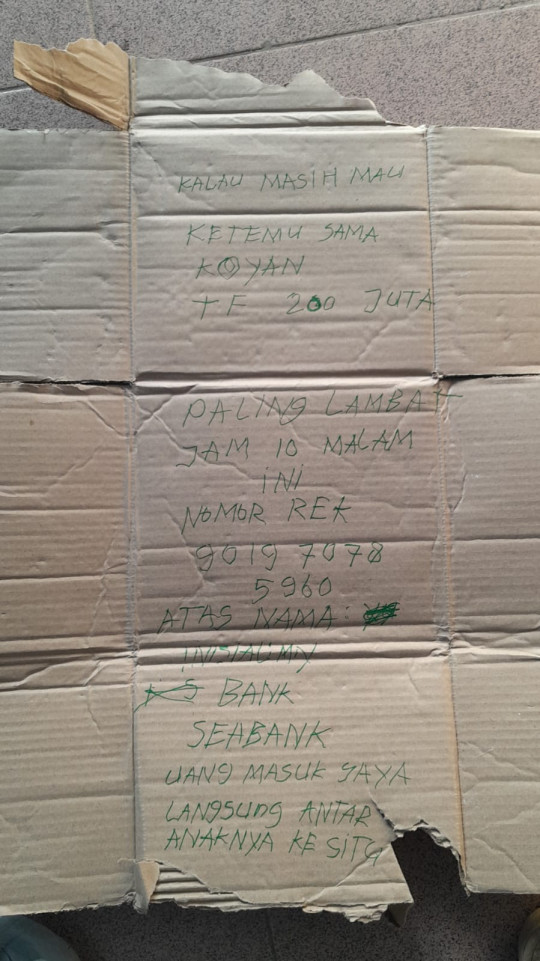 KALAU MASIH MAU
KETEMU SAMA
KOYAN
TF 200 JUTA
PALING LAMBAT
JAM 10 MALAM
iNi
NOMOR REK
9019 7078
5960
ATAS NAMA:
BANK
SEABANK
UANG MASUK SAYA
LANGSUNG ANTAR
ANAKNYA KE SITU